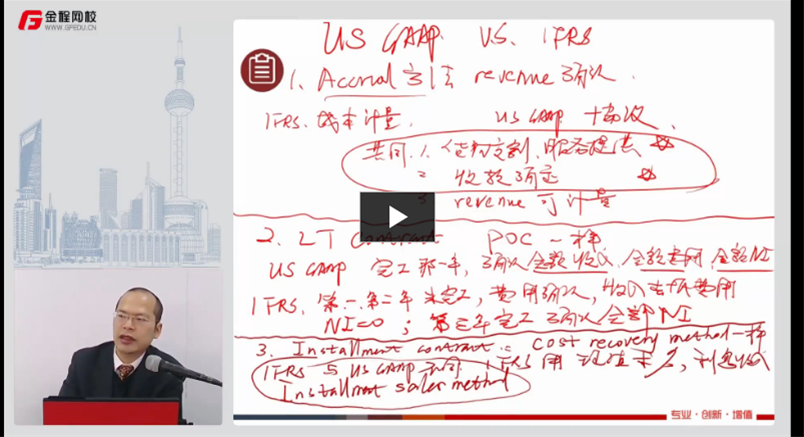 金程网校
WWW.GFEDU.CN
US GAAP VS. IFRS
1. Accrual 方法 revenue 确认.
IFRS. 成本计量. US GAAP
共同. 1. 货物交割. 服务提供
2 收款确定
3 revenue 可计量
2. LT Contract POC 一样
US GAAP 完工那一年, 确认全额收入, 全额费用, 全额NI
IFRS. 第一, 第二年未完工, 费用确认, 收入=费用
NI=0; 第三年完工确认全部NI
3. Installment contract: cost recovery method 一样
IFRS 与 US GAAP 不同 IFRS 用现值 利息收入
Installment sales method
专业·创新·增值